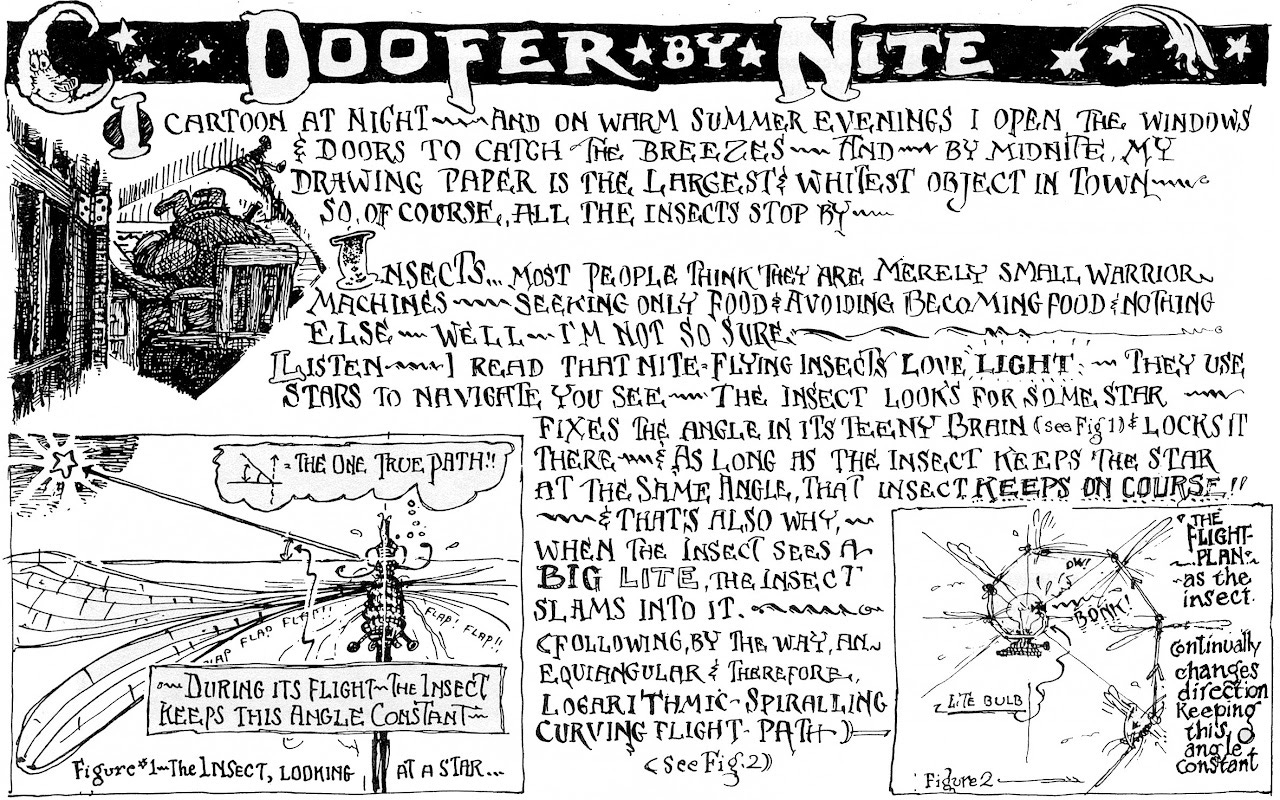 DOOFER★BY★NITE
I CARTOON AT NIGHT~~~AND ON WARM SUMMER EVENINGS I OPEN THE WINDOWS
& DOORS TO CATCH THE BREEZES~~AND~~BY MIDNITE, MY
DRAWING PAPER IS THE LARGEST & WHITEST OBJECT IN TOWN~~
SO, OF COURSE, ALL THE INSECTS STOP BY~~
INSECTS... MOST PEOPLE THINK THEY ARE MERELY SMALL WARRIOR
MACHINES~~~SEEKING ONLY FOOD & AVOIDING BECOMING FOOD & NOTHING
ELSE~~WELL~I'M NOT SO SURE.
LISTEN~~~I READ THAT NITE-FLYING INSECTS LOVE LIGHT:~THEY USE
STARS TO NAVIGATE YOU SEE~~THE INSECT LOOKS FOR SOME STAR~~
FIXES THE ANGLE IN ITS TEENY BRAIN (see Fig 1) & LOCKS IT
THERE~~& AS LONG AS THE INSECT KEEPS THE STAR
AT THE SAME ANGLE, THAT INSECT KEEPS ON COURSE!!
~~& THAT'S ALSO WHY,~
WHEN THE INSECT SEES A~
BIG LITE, THE INSECT
SLAMS INTO IT.
(FOLLOWING, BY THE WAY, AN
EQUIANGULAR & THEREFORE,
LOGARITHMIC-SPIRALLING
CURVING FLIGHT-PATH)
(See Fig. 2)
= THE ONE TRUE PATH!!
FLAP FLAP FLAP!!
FLAP! FLAP!!
~DURING ITS FLIGHT~THE INSECT
KEEPS THIS ANGLE CONSTANT~
Figure #1~THE INSECT, LOOKING AT A STAR...
THE
FLIGHT-
PLAN~
~as the
insect
continually
changes
direction
Keeping
this
angle
constant
OW!
BONK!
LITE BULB
Figure 2